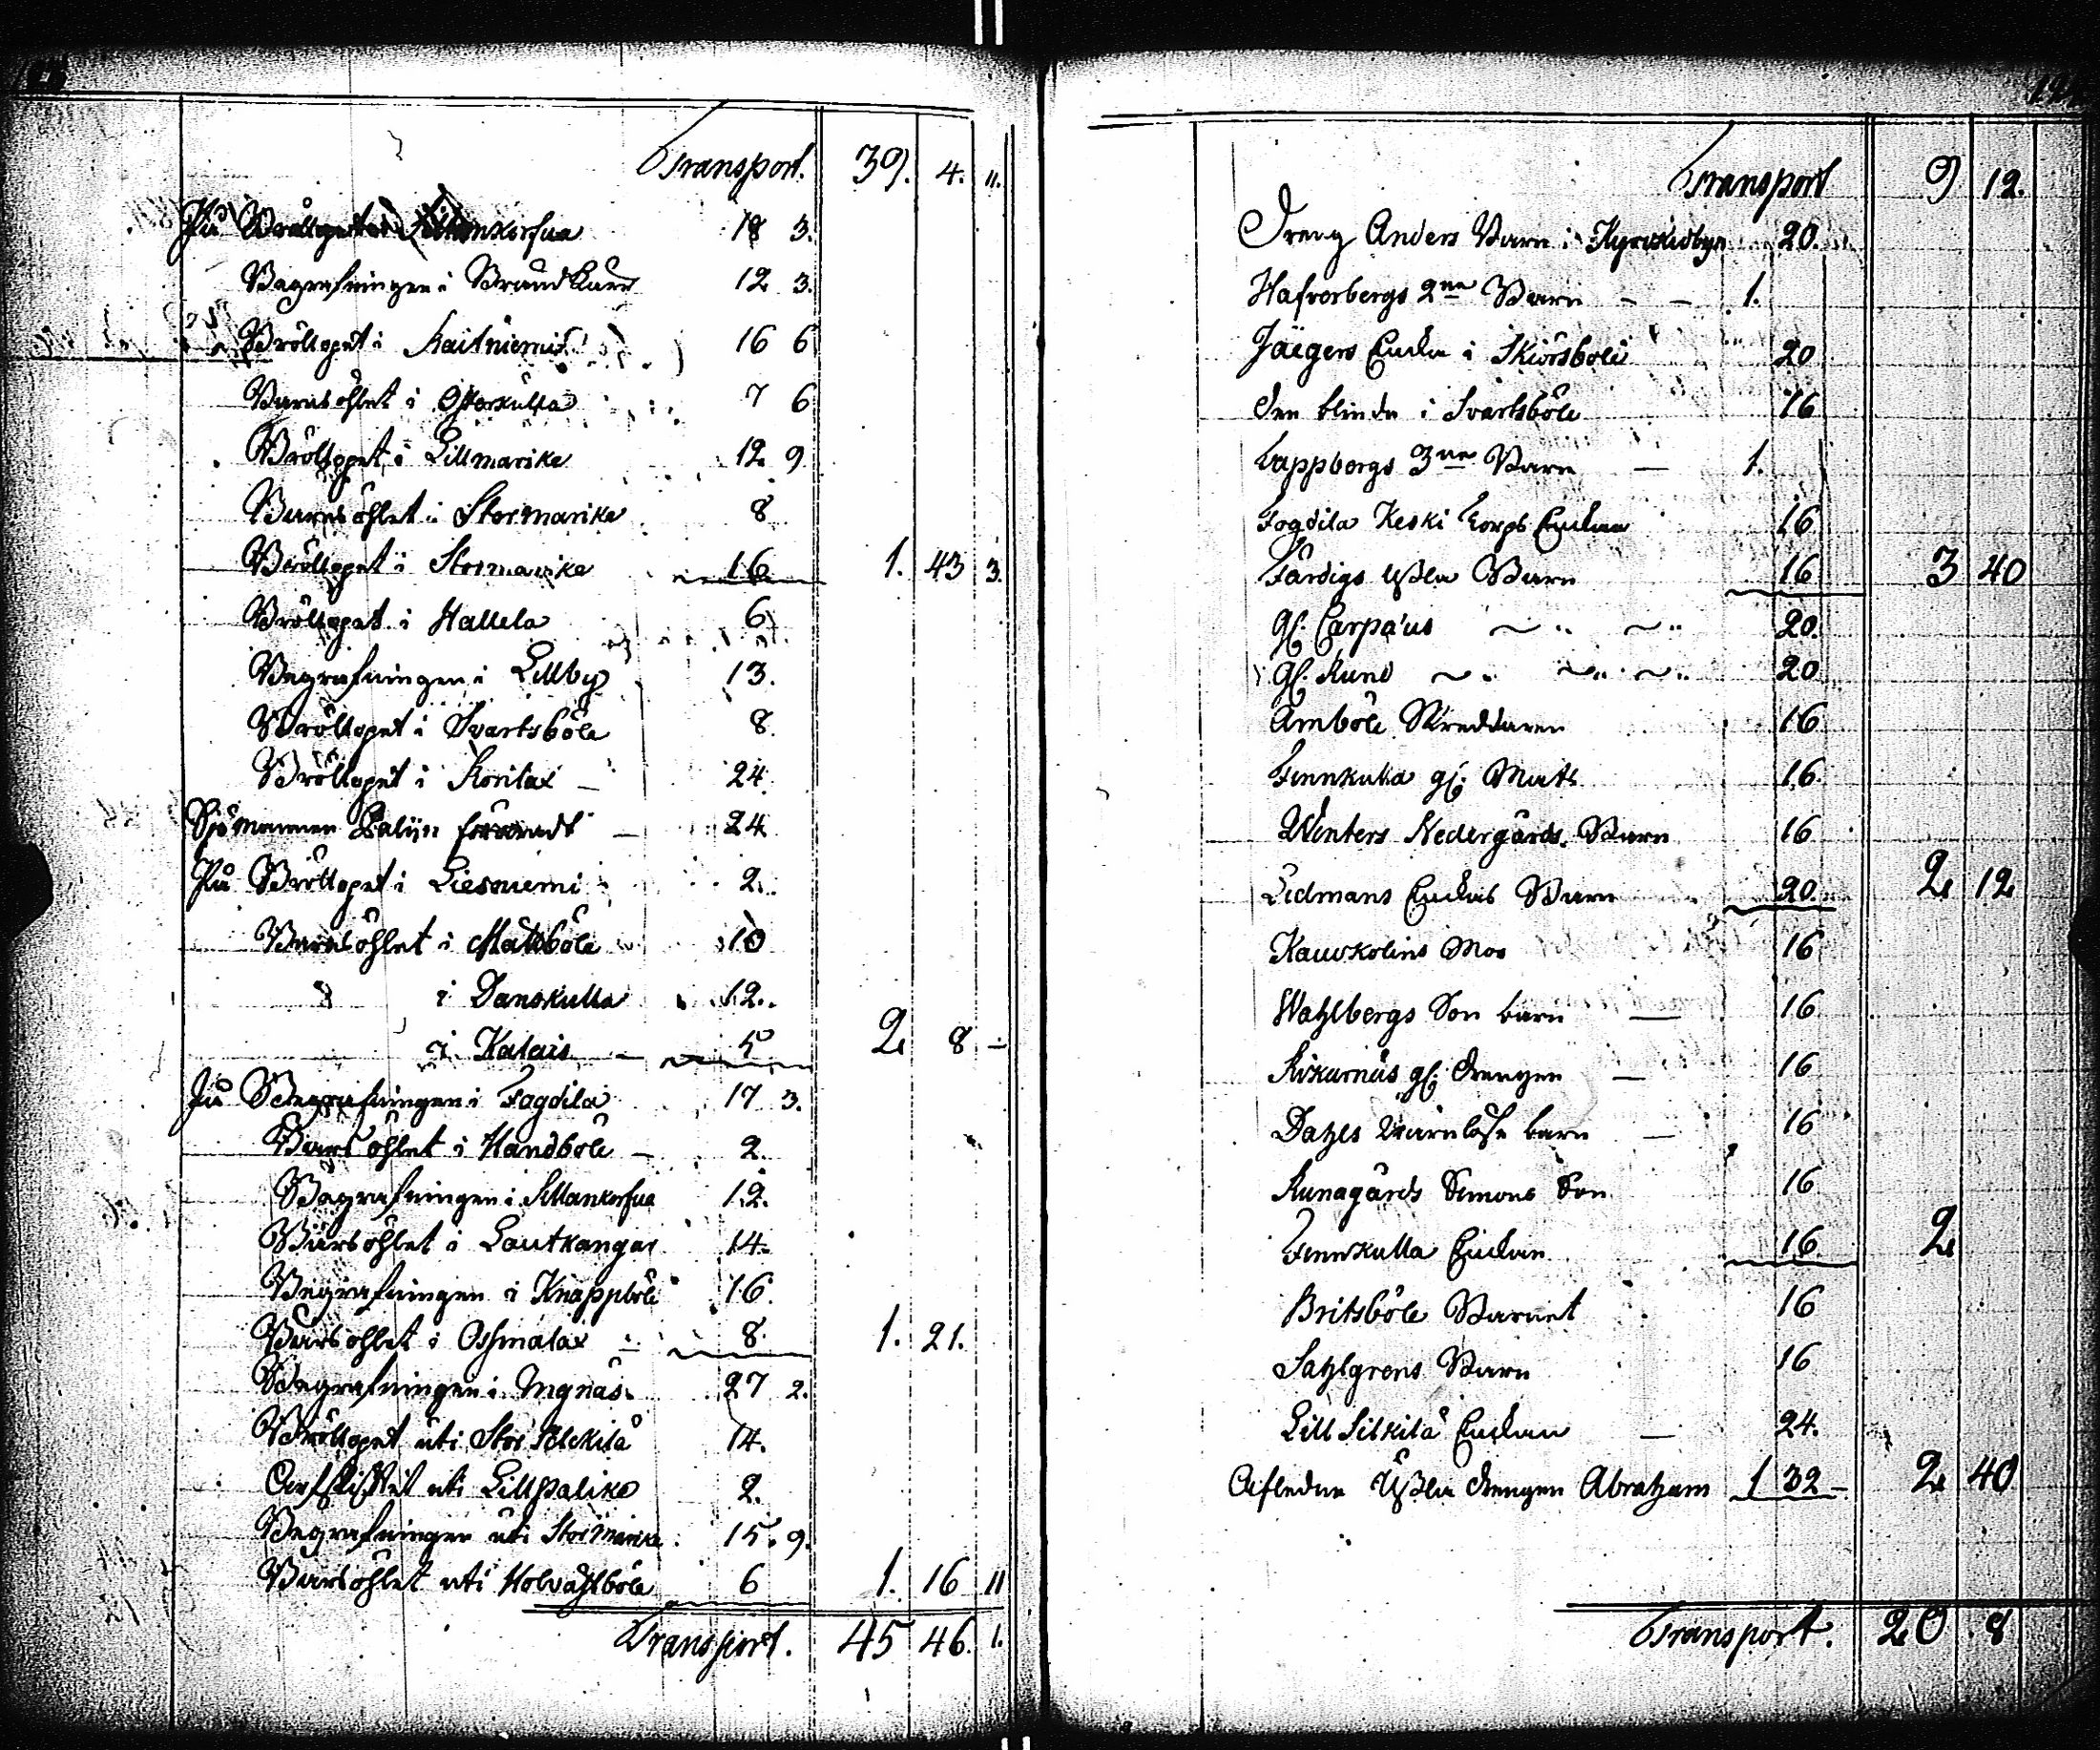 Transport. 39. 4. 11.
På Bröllopet i Sillankorfua 18 3.
Begrafningen i Strandkulla 12 3.
Bröllopet i Kaitniemis 16 6
Barnsöhlet i Osterkulla 7 6
Bröllopet i Lillmarike 12 9
Barnsöhlet i Stormarike 8
Bröllopet i Stormarike 16 1. 43 3.
Bröllopet i Hallela 6
Begrafningen i Lillby 13.
Bröllopet i Svartsböle 8.
Bröllopet i Korilax — 24.
Sjömannen föräradt — 24
På Bröllopet i Liesniemi 2.
Barnsöhlet i Matsböle 10
" i Danskulla 12.
i Kalais — 5 2 8 —
På Begrafningen i Fagdila 17 3.
Barnsöhlet i Handböle — 2.
Begrafningen i Sillankorfua 12.
Barnsöhlet i Lautkangar 14.
Begrafningen i Knappböle 16
Barnsöhlet i Ossmalax 8. 1. 21.
Begrafningen i Yngnäs 27 2.
Bröllopet uti Stor Silckilä 14.
Arfskiftet uti Lillpalike 2.
Begrafningen uti Stormarike 15. 9.
Barnsöhlet uti Holvastböle 6 1. 16 11
Transport. 45 46. 1.
Transport 9 12.
Dreng Anders Barn i Kyrckiobyn 20.
Hafverbergs 2ne Barn — — 1.
Jäegers Enka i Skiörsböle 20
den blinda i Svartsböle 16
Lappbergs 3ne Barn — 1.
Fogdila Keski Torps Enkan 16
Färdigs usla Barn 16 3 40
gl. Carpæus 20.
gl. Kuno 20
Amböle Skreddaren 16
Finnkulla gl. Mats 16.
Winters Nedergårds Barn 16
Lidmans Enkas Barn 20. 2 12
Kauvkolins Mor 16
Wahlbergs Son barn — 16
Kikurnäs gl. drengen — 16
Dahls värnlösa barn — 16
Kunagårds Simons Son 16
Finnskulla Enkan 16 2
Britsböle Barnet 16
Sahlgrens Barn 16
Lill Silkilä Enkan — 24.
Afledne Usla drengen Abraham 1 32 — 2 40
Transport. 20 8